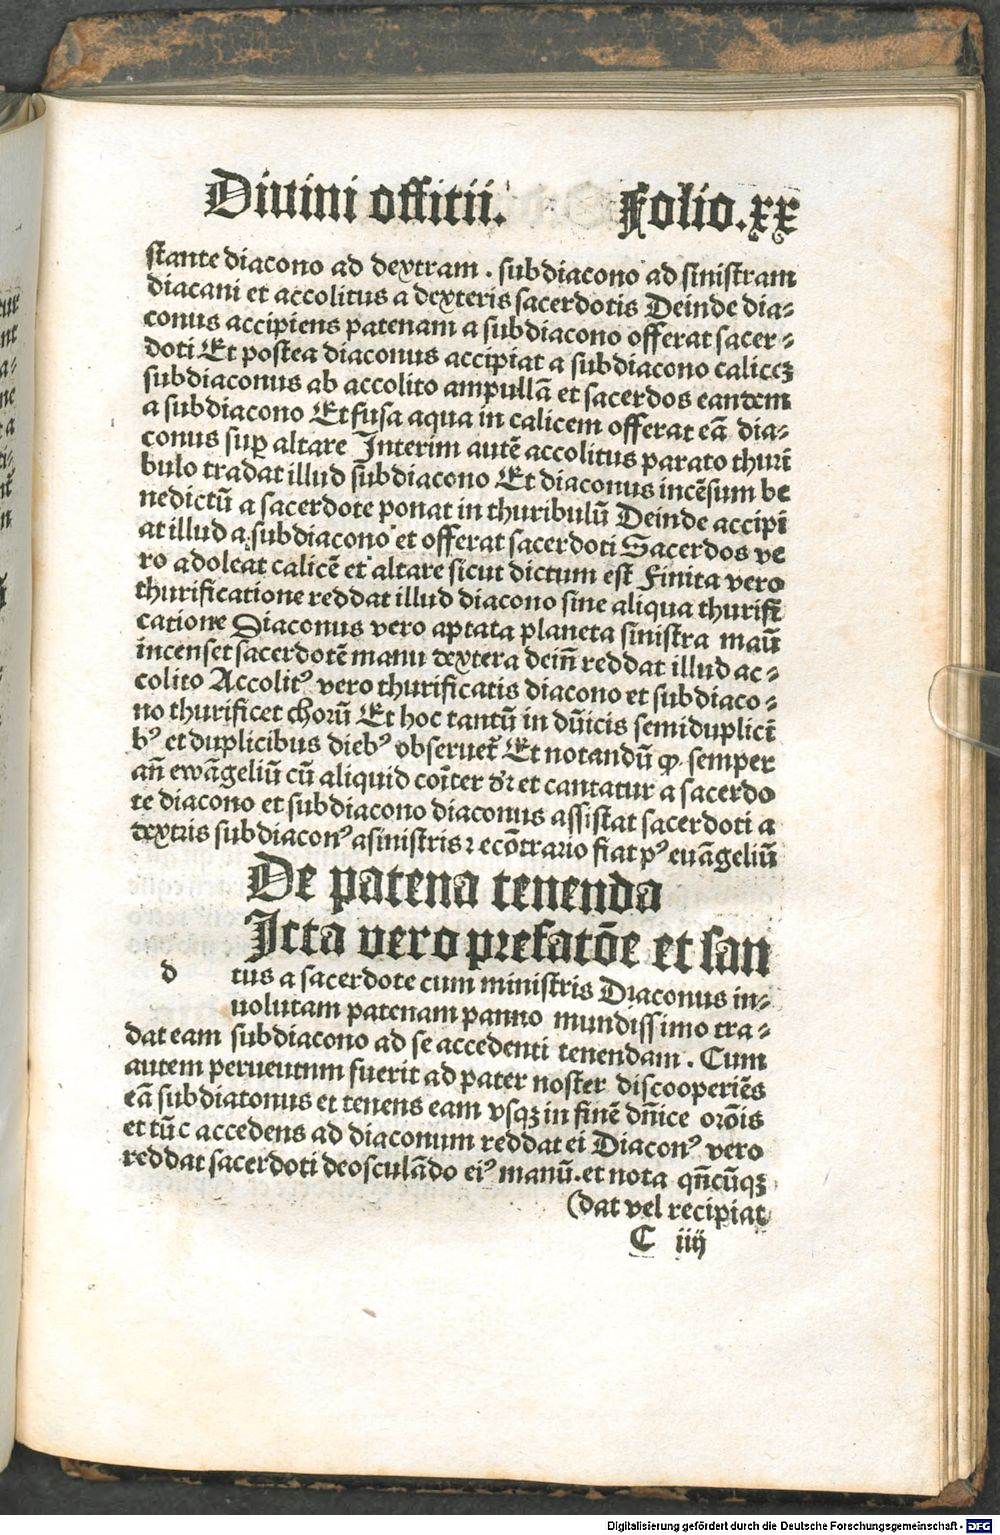 Diuini offitii. Folio.xx
stante diacono ad dextram . subdiacono ad sinistram
diacani et accolitus a dexteris sacerdotis Deinde dia-
conus accipiens patenam a subdiacono offerat sacer-
doti Et postea diaconus accipiat a subdiacono caliceꝫ
subdiaconus ab accolito ampullā et sacerdos eandem
a subdiacono Et fusa aqua in calicem offerat eā dia-
conus suꝑ altare Interim autē accolitus parato thuri
bulo tradat illud subdiacono Et diaconus incēsum be
nedictū a sacerdote ponat in thuribulū Deinde accipi
at illud a subdiacono et offerat sacerdoti Sacerdos ve
ro adoleat calicē et altare sicut dictum est Finita vero
thurificatione reddat illud diacono sine aliqua thurifi
catione Diaconus vero aptata planeta sinistra manū
incenset sacerdotē manu dextera dein̄ reddat illud ac-
colito Accolitꝰ vero thurificatis diacono et subdiaco-
no thurificet chorū Et hoc tantū in dn̄icis semiduplici
bꝰ et duplicibus diebꝰ obseruet̄ Et notandū ꝙ semper
an̄ ewāgeliū cū aliquid coīter dr̄ et cantatur a sacerdo
te diacono et subdiacono diaconus assistat sacerdoti a
dextris subdiaconꝰ asinistris ⁊ ecōtrario fiat pꝰ euāgeliū
De patena tenenda
Icta vero prefatōe et san
d tus a sacerdote cum ministris Diaconus in-
uolutam patenam panno mundissimo tra-
dat eam subdiacono ad se accedenti tenendam . Cum
autem peruentum fuerit ad pater noster discooperiēs
eā subdiatonus et tenens eam vsqꝫ in finē dn̄ice orōis
et tūc accedens ad diaconum reddat ei Diaconꝰ vero
reddat sacerdoti deosculādo eiꝰ manū.et nota qn̄cūqꝫ
(dat vel recipiat
C iiij
Digitalisierung gefördert durch die Deutsche Forschungsgemeinschaft - DFG